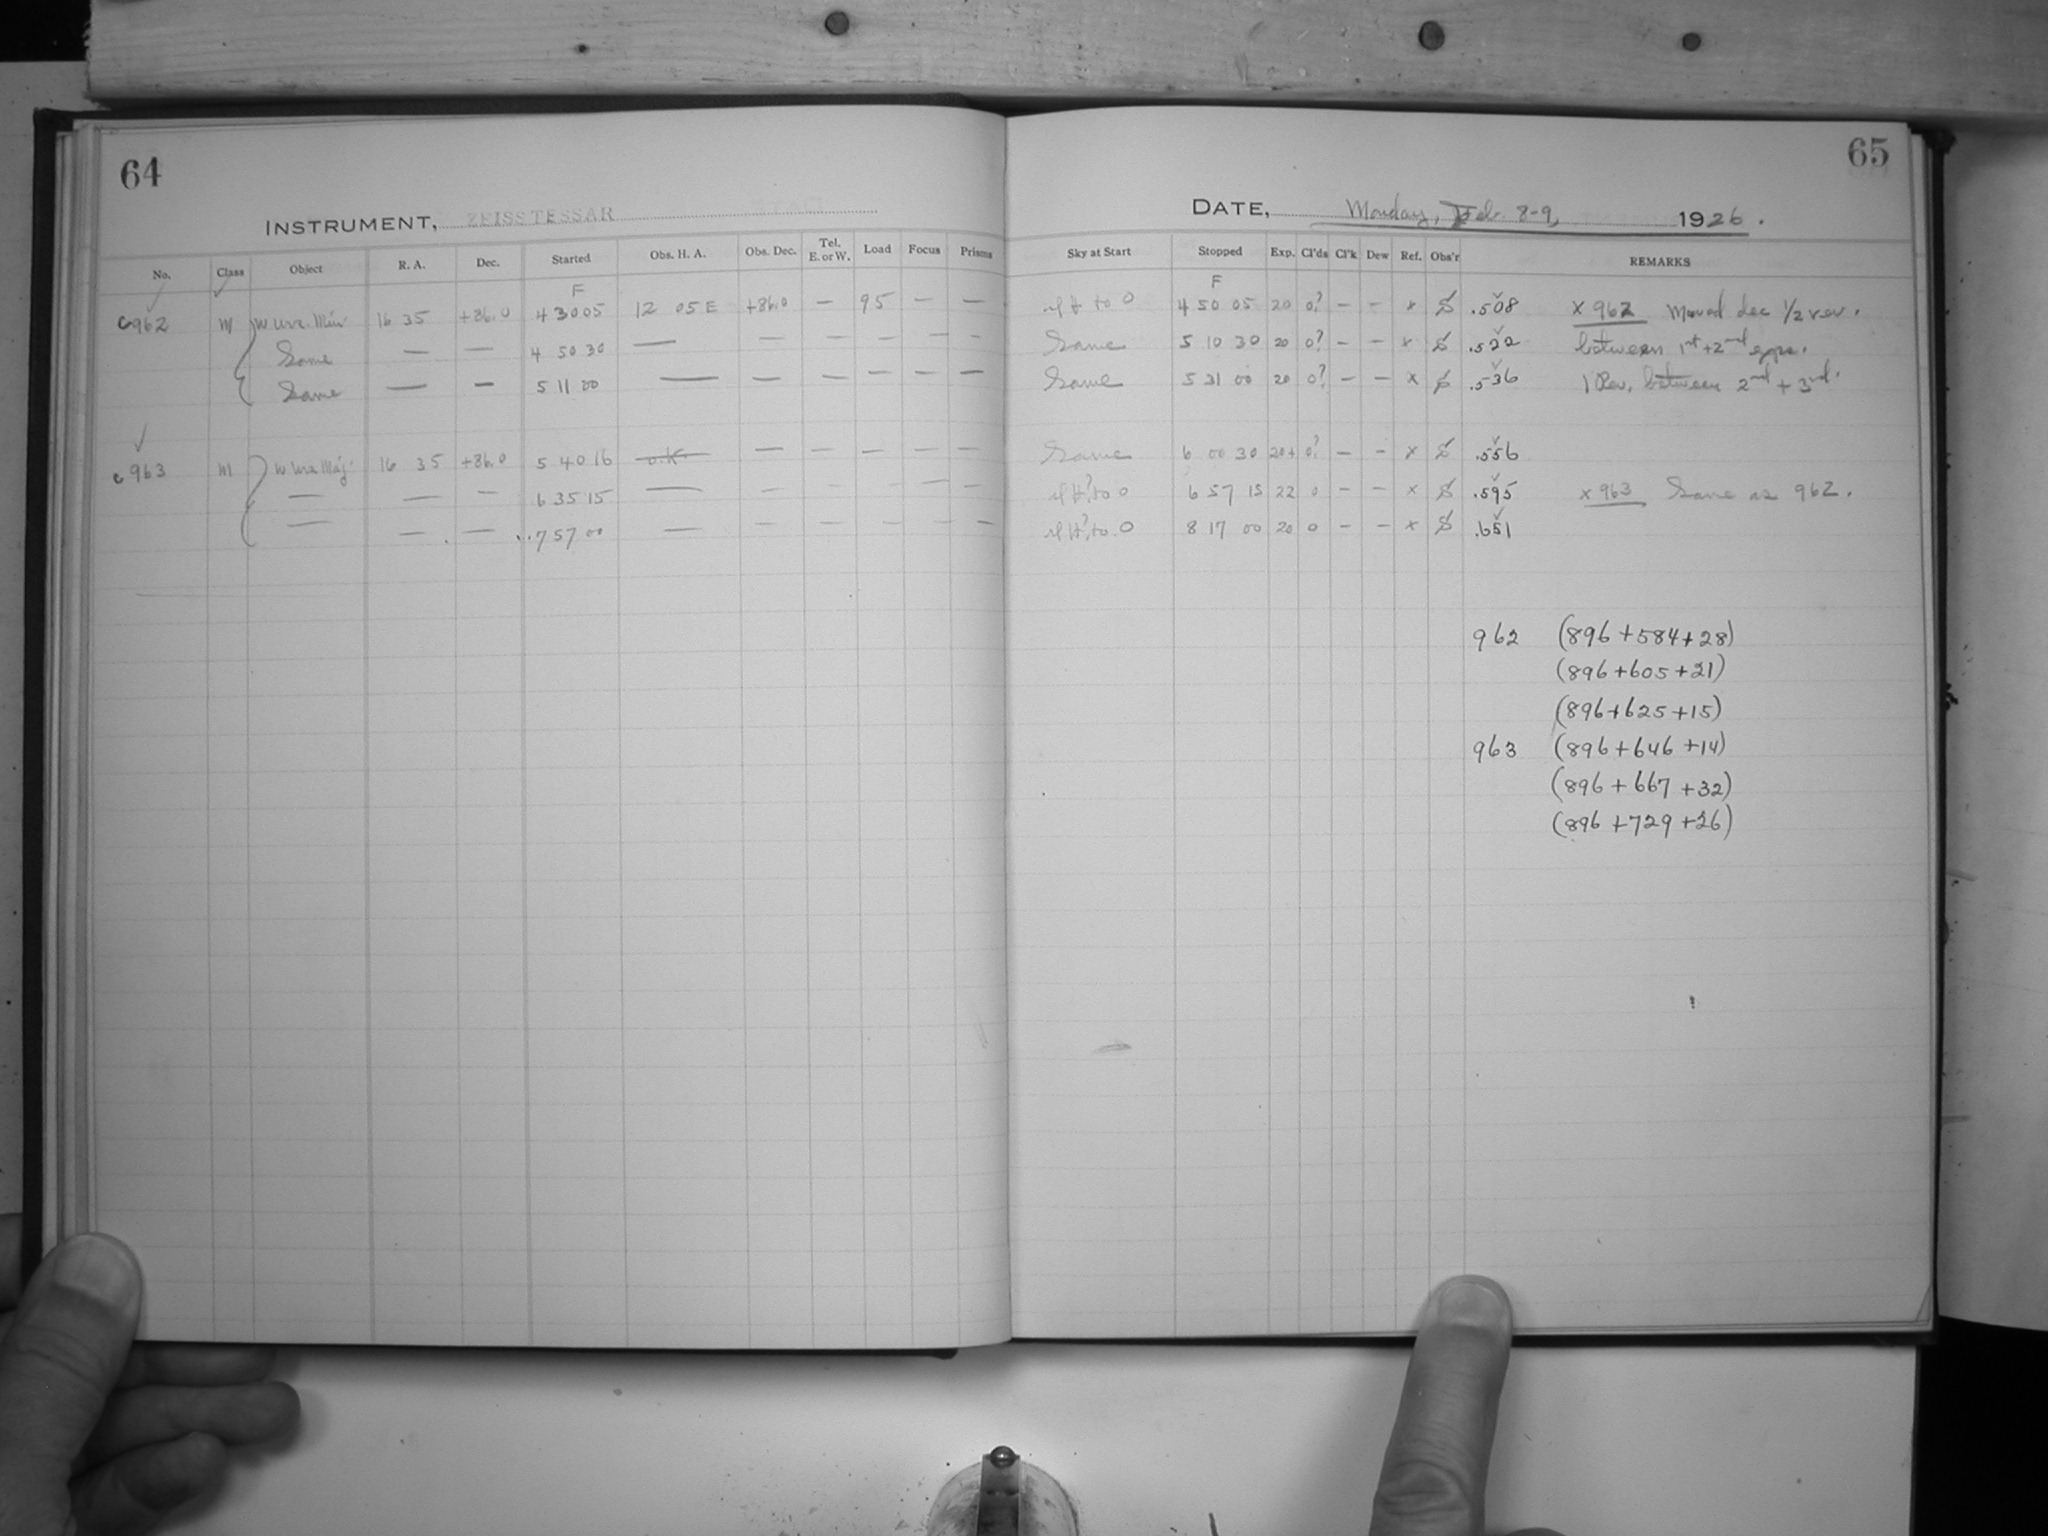 64
INSTRUMENT, ZEISS TESSAR
No. Class Object R. A. Dec. Started Obs. H. A. Obs. Dec. Tel. E. or W. Load Focus Prisms
F
c962 M W Urs. Min 16 35 +86.0 4 30 05 12 05 E +86.0 — 95 — —
Same — — 4 50 30 — — — — — —
Same — — 5 11 00 — — — — — —
c963 M W Urs. Maj. 16 35 +86.0 5 40 16 o.K. — — — — —
— — — 6 35 15 — — — — — —
— — — 7 57 00 — — — — — —
65
DATE, Monday, Feb. 8-9, 1926.
Sky at Start Stopped Exp. Cl'ds Cl'k Dew Ref. Obs'r REMARKS
F
to 0 4 50 05 20 0? — — x .508 x 962 Moved dec 1/2 rev.
Same 5 10 30 20 0? — — x .522 between 1st + 2nd exps.
Same 5 31 00 20 0? — — x .536 1 Rev. between 2nd + 3rd.
Same 6 00 30 20+ 0? — — x .556
to 0 6 57 15 22 0 — — x .595 x 963 Same as 962.
to 0 8 17 00 20 0 — — x .651
962 (896+584+28)
(896+605+21)
(896+625+15)
963 (896+646+14)
(896+667+32)
(896+729+26)